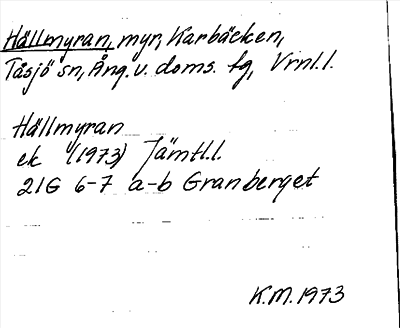 Hällmyran, myr, Karbäcken,
Tåsjö sn, Ång. v. doms. fg, Vrnl.l.
Hällmyran
ek (1973) Jämtl.l.
21G 6-7 a-b Granberget
K.M. 1973